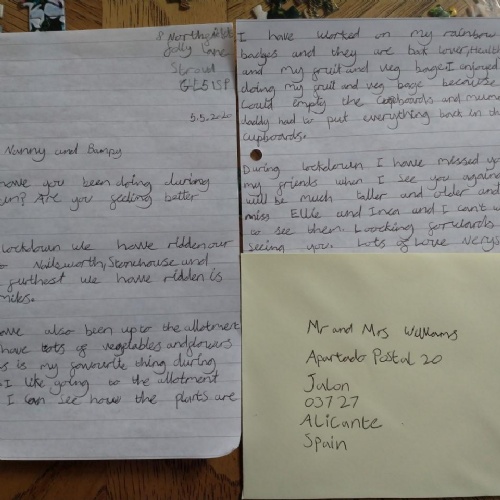 Lane
Stroud
GL5 1SP
Nanny and Bumpy
have you been doing during
Are you feeling better
lockdown we have ridden our
Nailsworth, Stonehouse and
furthest we have ridden is
miles.
also been up to the allotment
have lots of vegetables and flowers
is my favourite thing during
I like going to the allotment
I can see how the plants are
I have worked on my rainbow
badges and they are book lover,
and my fruit and veg bage. I enjoyed
doing my fruit and veg bage because
could empty the cupboards and mum
daddy had to put everything back in th
cupboards.
During lockdown I have messed yo
my friends when I see you again
will be much taller and older and
miss Ellie and and I can't w
to see them. Loocking forwards
seeing you. Lots of Love Nerys
Mr and Mrs Williams
Apartado Postal 20
Jalon
03727
Alicante
Spain